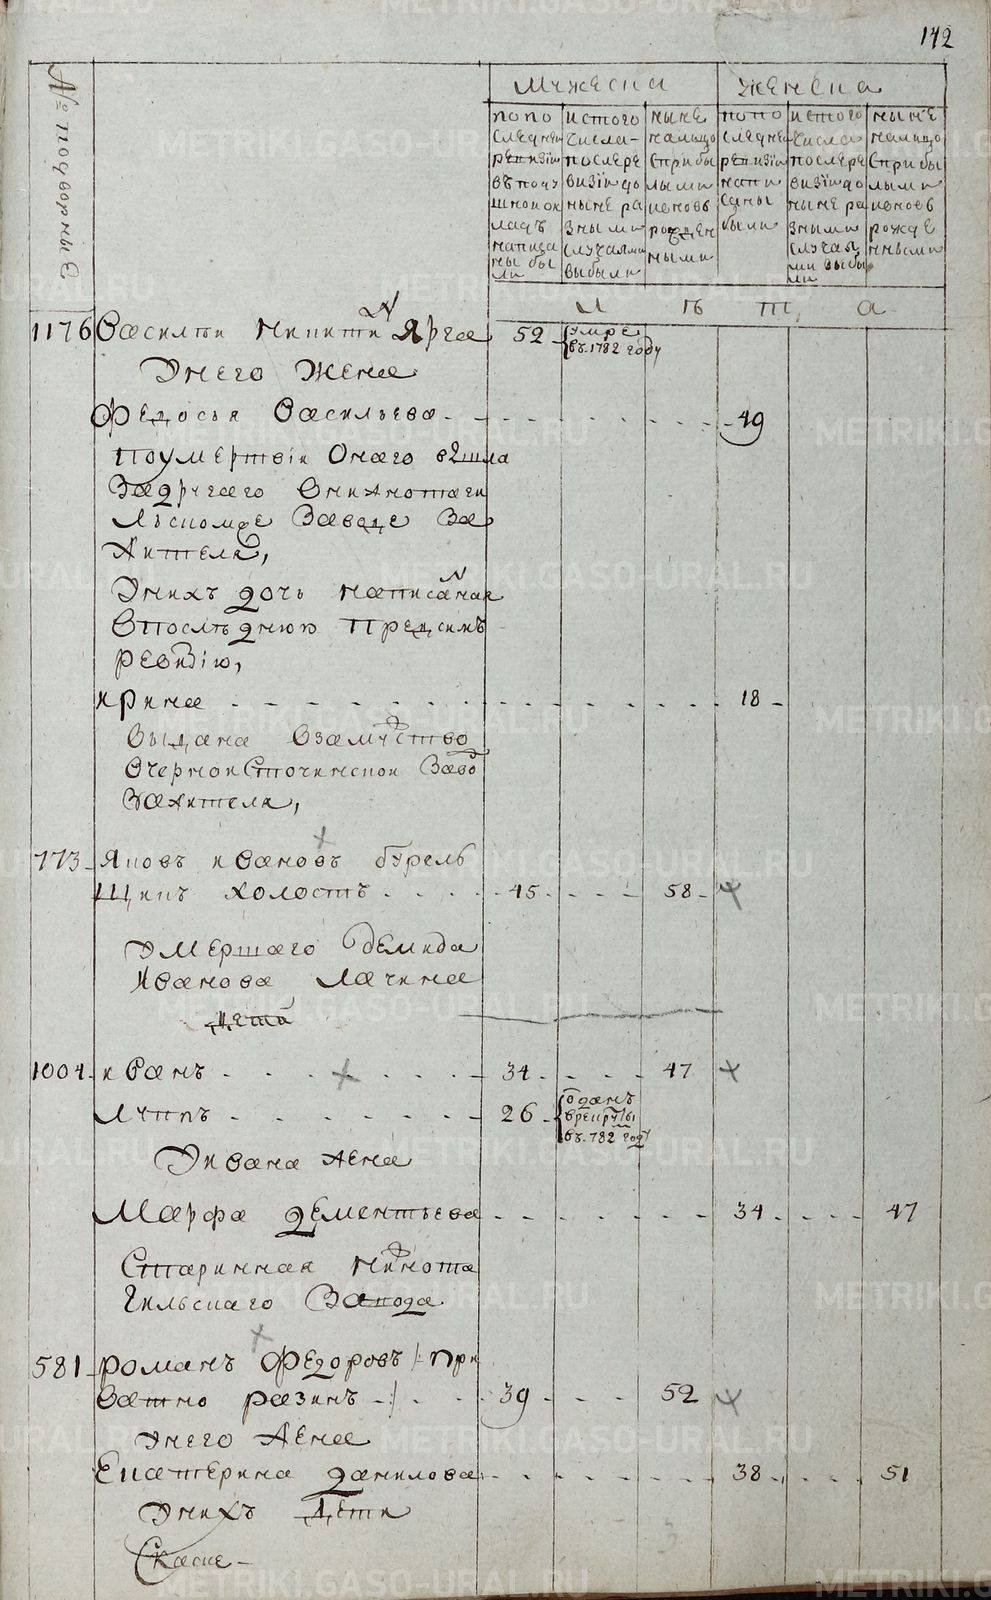 142
№ подворные
Мужеска
Женска
по последней ревизiи въ подушной окладъ написаны были
ис того числа после ревизiи до ныне разными случаями выбыли
ныне на лицо с прибылыми и вновь рожденными
по последней ревизiи написаны были
ис того числа после ревизiи до ныне разными случаями выбыли
ныне на лицо с прибылыми и вновь рожденными
л ѣ т а
1176 Василеи Никитин 52 умре
въ 1782 году
У него жена
Федосья Васильева 49
по умертвiи онаго вышла
За другаго в нижнотаги
льскомже Заводе За
жителя,
У них дочь написанная
в последнюю пред симъ
ревизiю,
ирина 18
выдана в замужство
в Черноисточинскои Заво
За жителя,
773 Яковъ ивановъ бурель
щикъ холостъ 45 58
Умершаго Демида
Иванова Лачина
дети
1004 иванъ 34 47
Лупъ 26 отданъ
в рекруты
въ 782 году
У ивана жена
Марфа дементьева 34 47
Старинная нижнота
гильскаго Завода
581 романъ Федоровъ /: при
ватно разинъ :/ 39 52
У него жена
Екатерина данилова 38 51
У нихъ дети